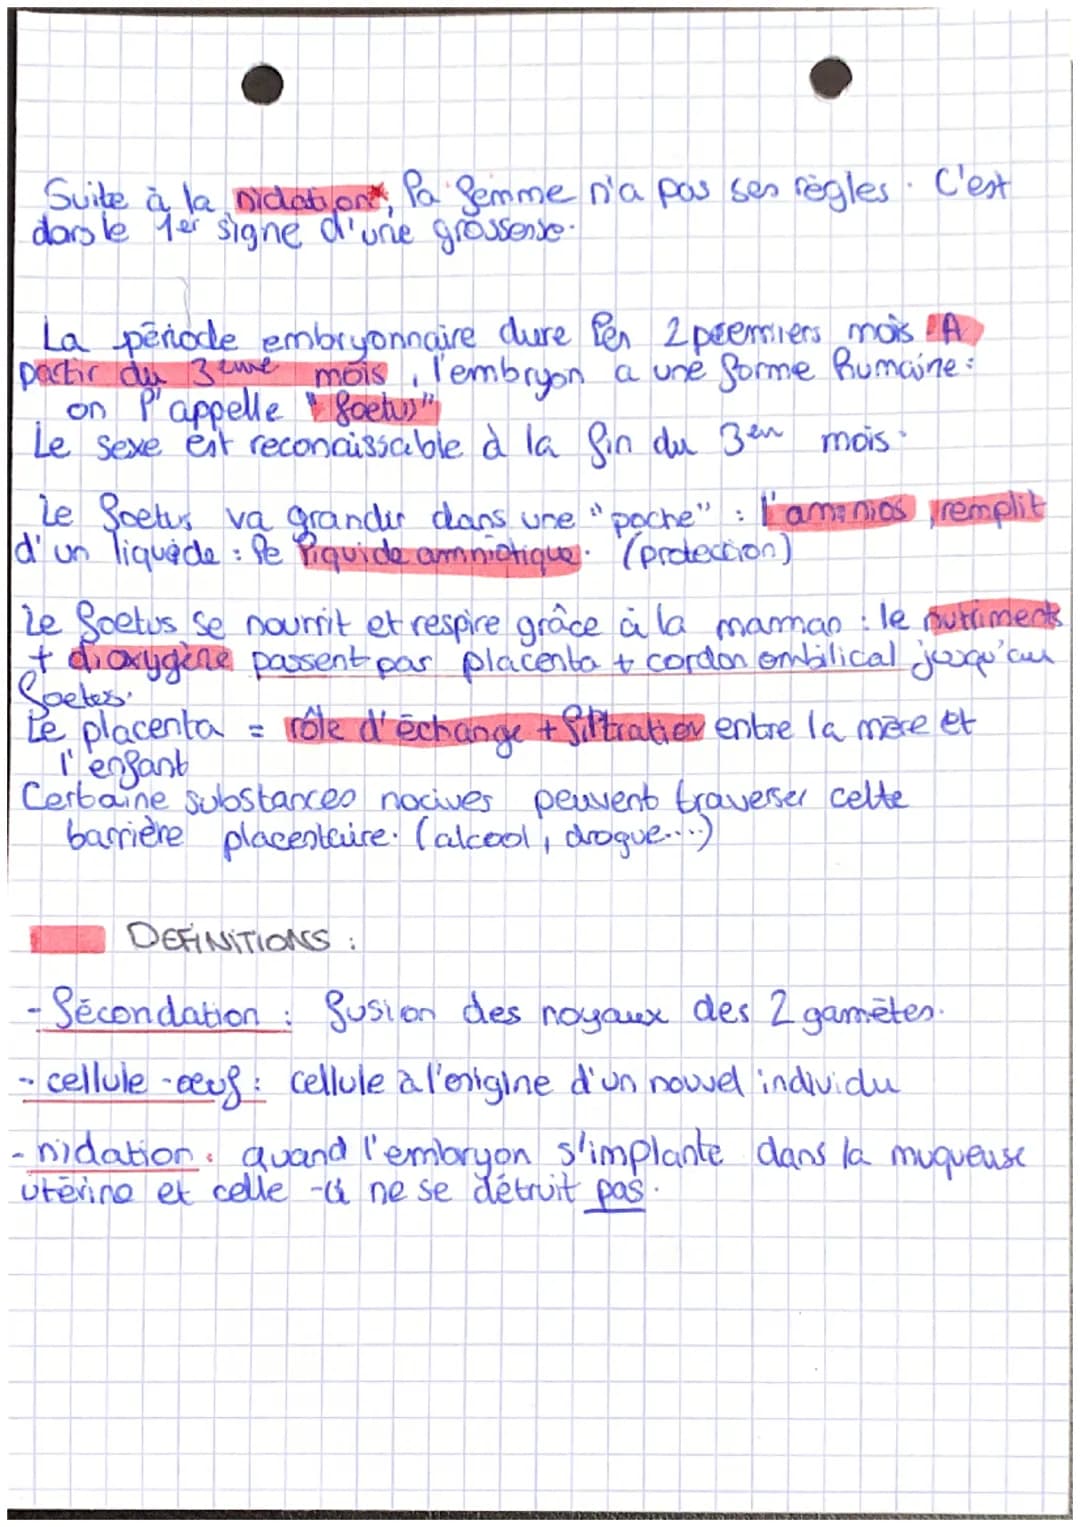 Suite à la nidation*, la femme n'a pas ses règles. C'est
dans le 1er signe d'une grossesse.
La période embryonnaire dure les 2 premiers mois. A
partir du 3eme mois, l'embryon a une forme humaine :
on l'appelle "foetus"
Le sexe est reconaissable à la fin du 3em mois.
Le foetus va grandir dans une "poche" : l'amnios, remplit
d'un liquide : le liquide amniotique. (protection)
Le foetus se nourrit et respire grâce à la maman : le nutriments
+ dioxygène passent par placenta + cordon ombilical jusqu'au
foetus.
Le placenta = rôle d'échange + filtration entre la mère et
l'enfant
Certaine substances nocives peuvent traverser cette
barrière placentaire. (alcool, drogue....)
DEFINITIONS :
- fécondation : fusion des noyaux des 2 gamètes.
- cellule-oeuf : cellule à l'origine d'un nouvel individu
- nidation : quand l'embryon s'implante dans la muqueuse
utérine et celle-ci ne se détruit pas.